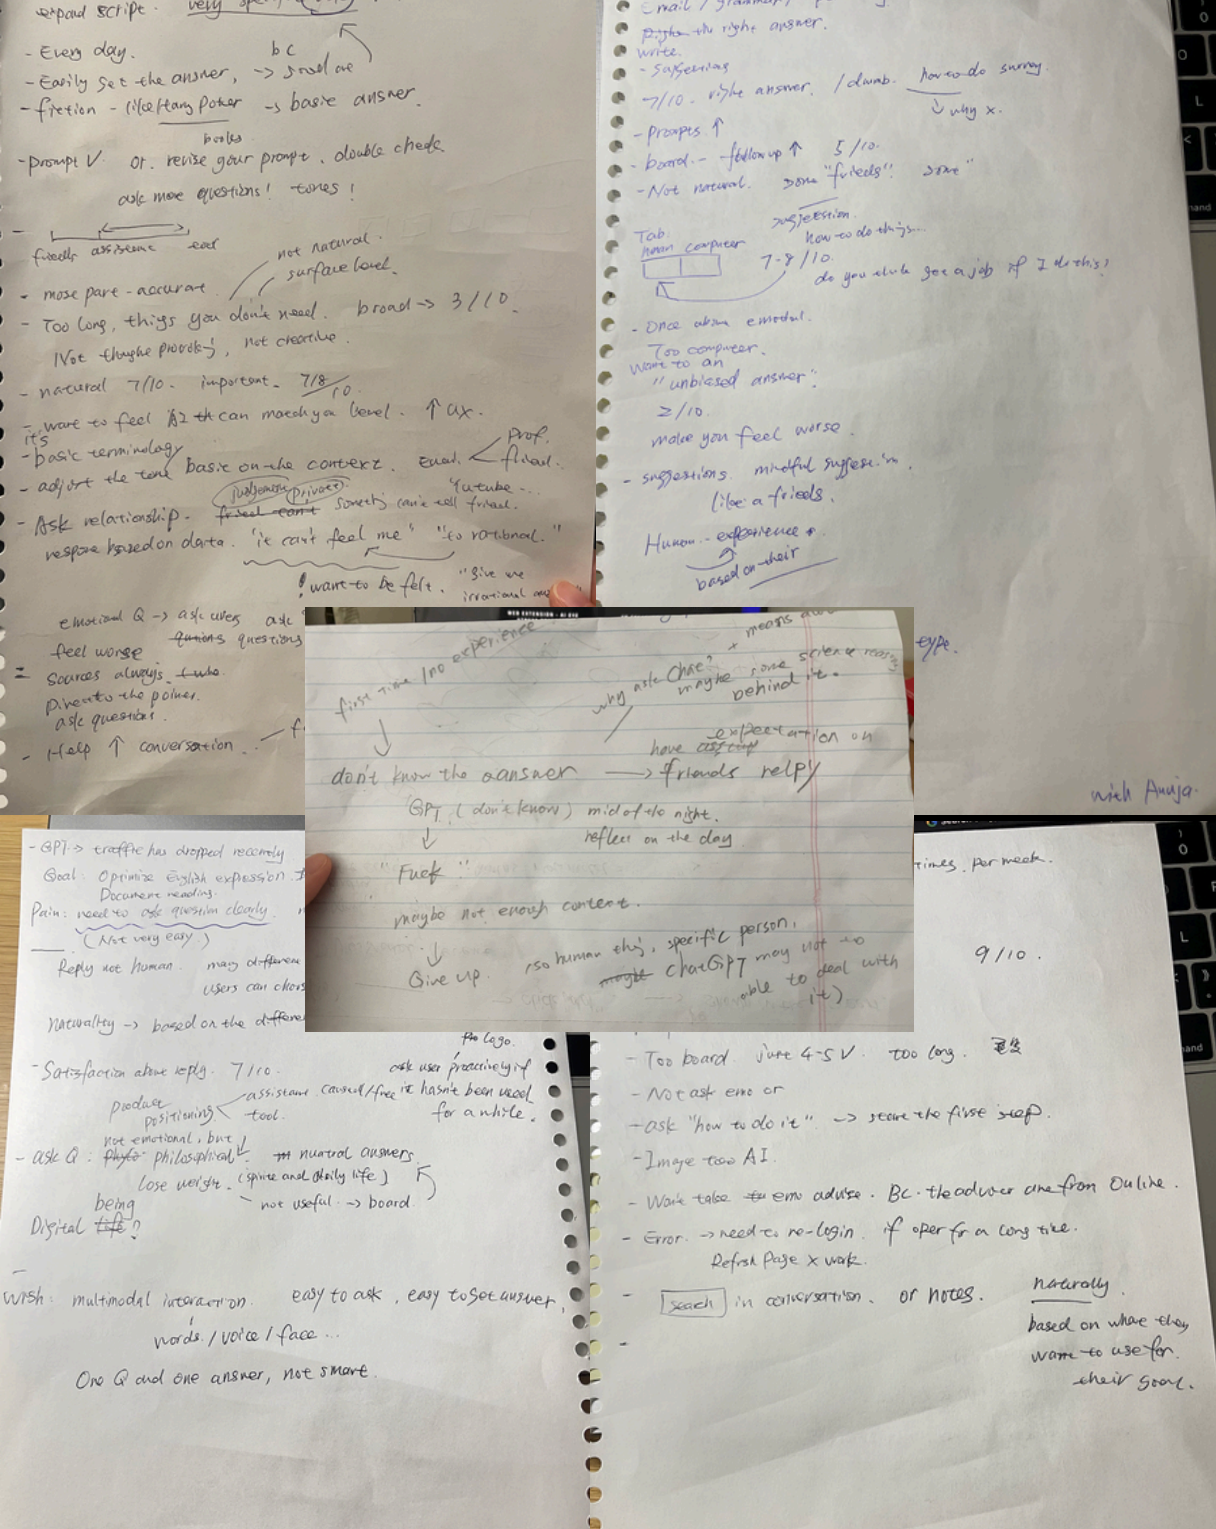 expand script. very
- Every day. bc
- Easily get the answer, →
- fiction - like Harry Potter → basic answer.
books
- prompt V. or. revise your prompt, double check
ask more questions! tones!
- friends assistant
- most part - accurate
not natural.
surface level.
- Too long, things you don't need. broad → 3/10.
Not thought provoking, not creative.
- natural 7/10. important. 7/8/10
- want to feel AI can match your level. ↑ UX.
it's
- basic terminology
- adjust the tone basic on the context. Email. < Prof. friend.
judgement private Yutube -..
- Ask relationship. friend can't something can't tell friend.
respone based on data. "it can't feel me" "to rational."
! want to be felt. "Give me
irrational
emotional Q → ask users ask
feel worse questions questions
= sources always.
Direct to the point.
ask questions.
- Help ↑ conversation ..
Email / grammar /
the right answer.
write.
- suggestions
7/10. right answer. / dumb. how to do survey.
↓ why x.
- prompts ↑
- board. - followup ↑ 5/10.
- Not natural. some "frieds". some"
suggestion.
Tab. how to do things...
human computer 7-8/10.
do you think get a job if I do this?
- Once about emotional.
Too computer.
want to an
"unbiased answer".
2/10.
make you feel worse.
- suggestions. mindful suggestion.
like a frieds.
Human. - experience
based on their
type.
with Anuja.
first time / no experience
why ask Chat? x means
maybe some science reason
behind it.
have expectation on
don't know the aansner → friends relpy
GPT (don't know) mid of the night.
↓ reflect on the day
"Fuck"
maybe not enough context.
↓
Give up. (so human thing, specific person,
maybe chatGPT may not
able to deal with
it)
- GPT → traffic has dropped recently
Goal: Optimize English expression.
Document reading.
Pain: need to ask question clearly.
(Not very easy.)
Reply not human. may different
users can
naturality → based on the different
logo.
- Satisfaction about reply. 7/10. ask user proactively if
product < assistant it hasn't been used
positioning tool. for a while.
not emotional, but ↓
- ask Q: philosophical. answers.
lose weight. (spirit and daily life)
not useful → board
being
Digital life?
Wish: multimodal interaction. easy to ask, easy to get answer,
words / voice / face ...
One Q and one answer, not smart.
times. per week.
9/10.
- Too board. just 4-5 V. too long.
- Not ask emo or
- ask "how to do it" → start the first step.
- Image too AI.
- Won't take emo advise. BC. the advice are from Online.
- Error. → need to re-login. if open for a long time.
Refresh Page x work.
- search in conversation. or notes.
naturally.
based on what they
want to use for.
their goal.
-